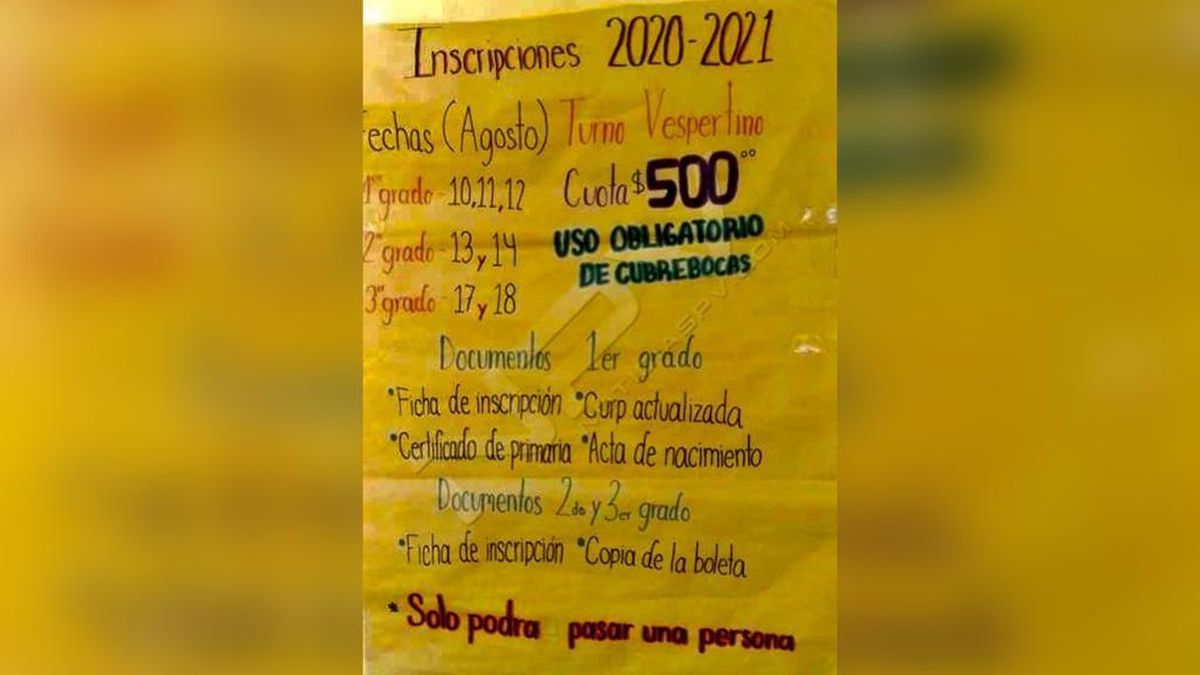 Inscripciones 2020-2021
Fechas (Agosto) Turno Vespertino
1er grado - 10,11,12 Cuota $500.00
2º grado - 13 y 14 USO OBLIGATORIO
DE CUBREBOCAS
3er grado - 17 y 18
Documentos 1er grado
*Ficha de inscripción *Curp actualizada
*Certificado de primaria *Acta de nacimiento
Documentos 2do y 3er grado
*Ficha de inscripción *Copia de la boleta
* Solo podra pasar una persona